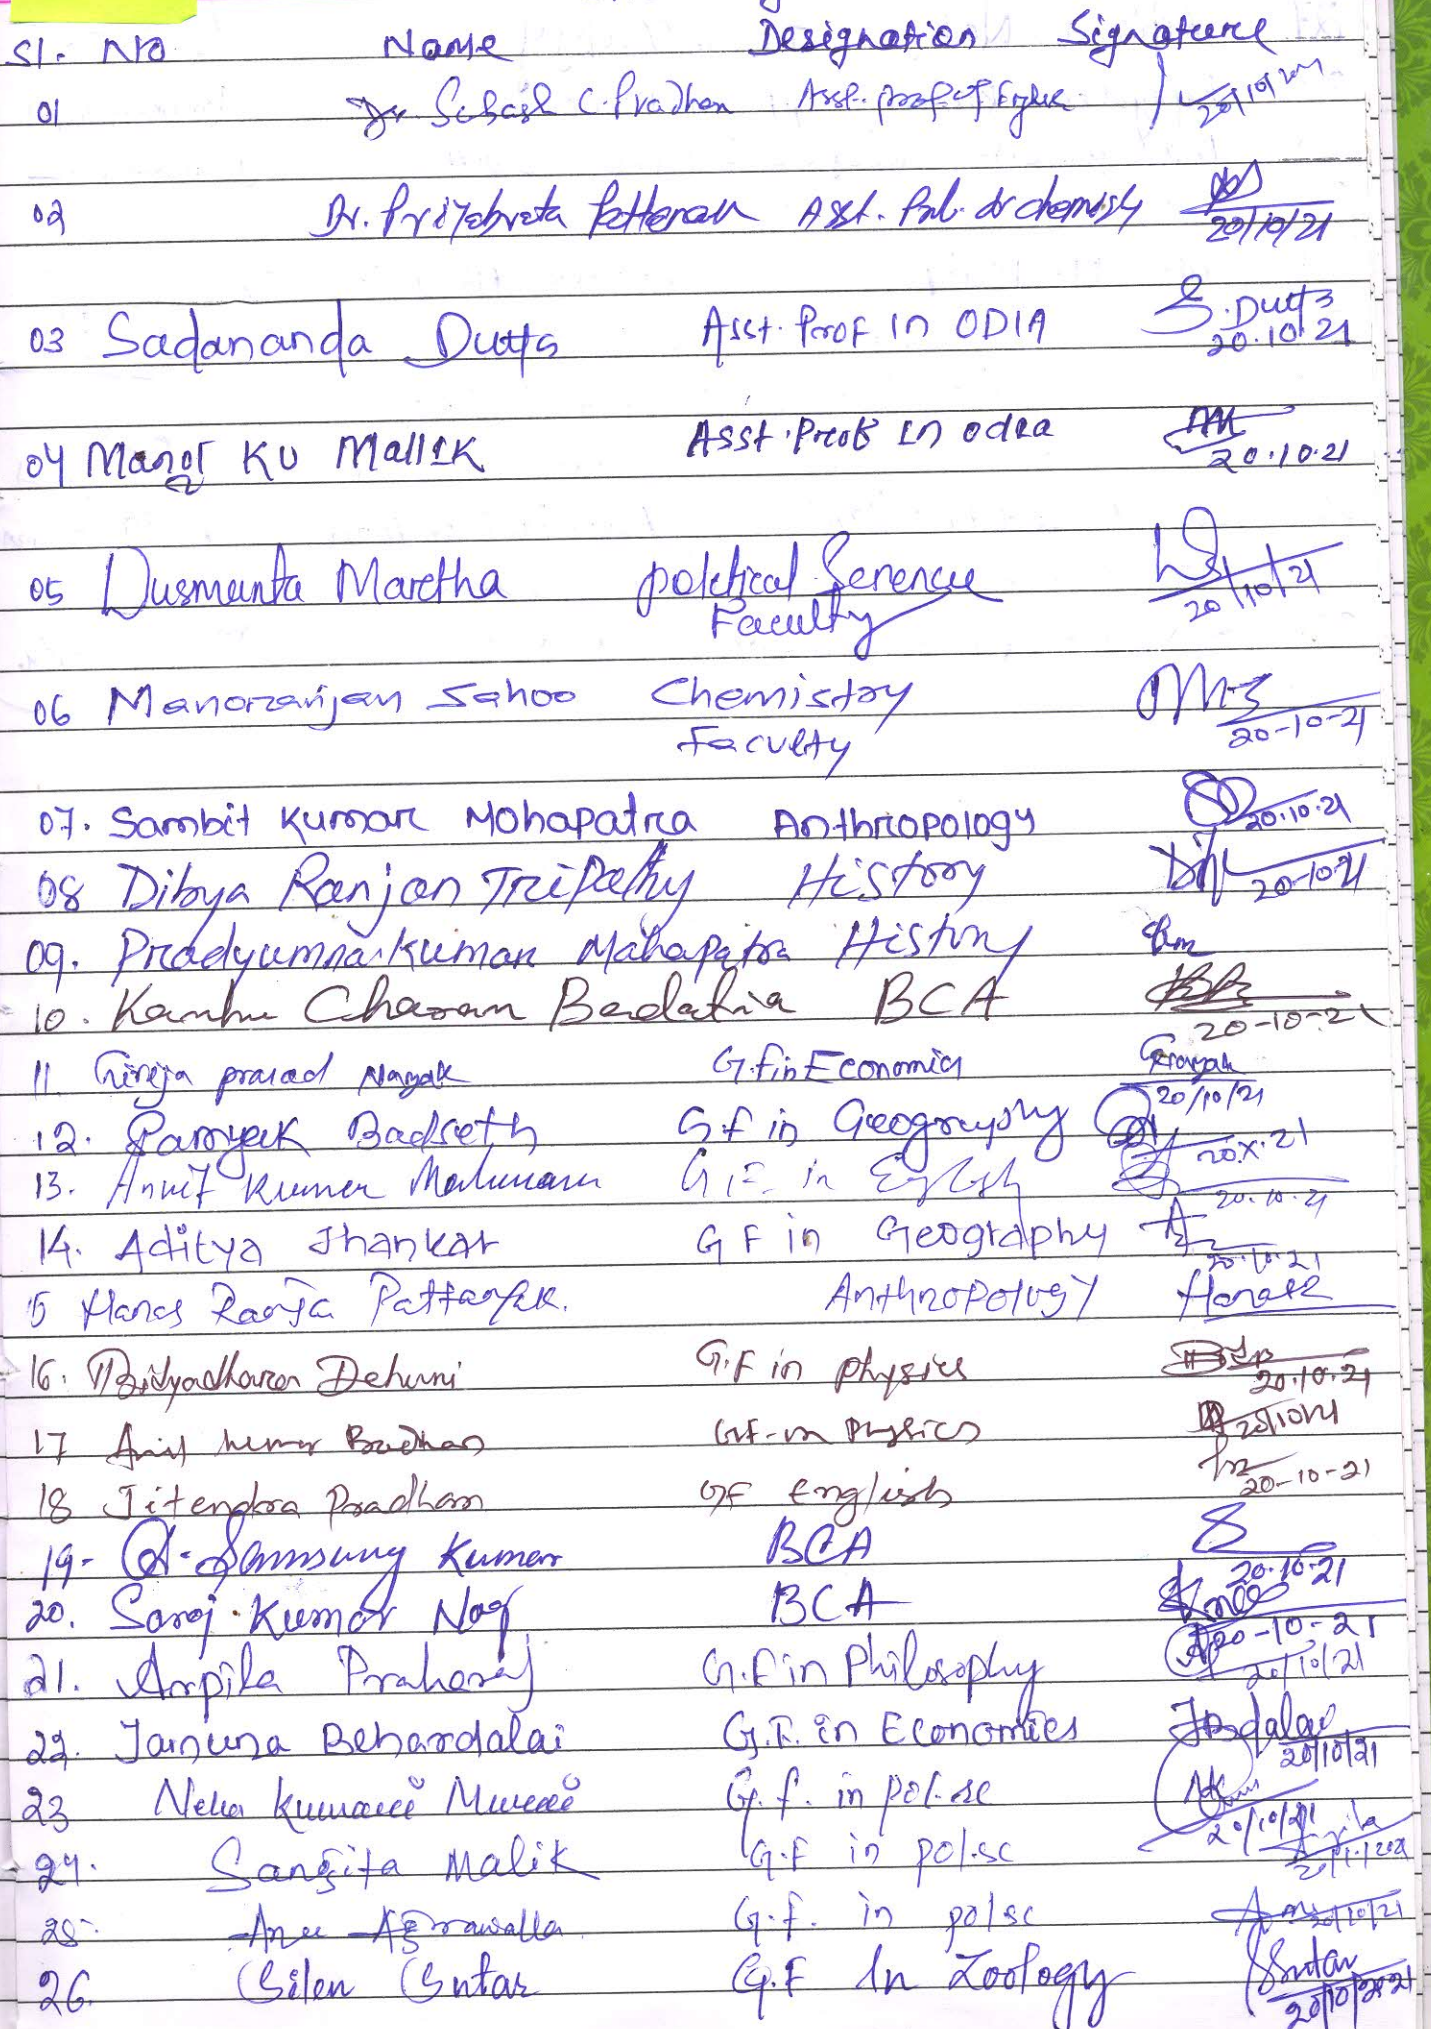 Sl. No Name Designation Signature
01 Dr. Subash C. Pradhan Asst. prof of 20/10/2021
02 Dr. Priyabrata Pattanaik Asst. Prof. in chemistry 20/10/21
03 Sadananda Dutta Asst. Prof in ODIA S. Dutta
20.10.21
04 Manoj KU Mallik Asst. Prof in odia
20.10.21
05 Dusmanta Maretha political Science
Faculty 20/10/21
06 Manoranjan Sahoo Chemistry
Faculty 20-10-21
07. Sambit Kumar Mohapatra Anthropology 20.10.21
08 Dibya Ranjan Tripathy History 20-10-21
09. Pradyumna Kumar Mahapatra History
10. Kanhu Charan Badatia BCA
20-10-21
11 Girija prasad Nayak G.F in Economics GNayak
20/10/21
12. Samyak Badseth G.F in Geography
20.X.21
13. Kumar G.F. in English
20.10.21
14. Aditya Jhankar G F in Geography
20.10.21
5 Pattanyak. Anthropology
16. Bidyadhara Dehuri G.F in physics
20.10.21
17 Kumar Pradhan GF-in Physics 20/10/21
18 Jitendra Pradhan GF English
20-10-21
19- Samsung Kumar BCA
20.10.21
20. Saroj Kumar Nag BCA
20-10-21
21. Arpita Praharaj G.F in Philosophy
20/10/21
22. Jamuna Behardalai G.F. in Economics JBdalai
20/10/21
23 Neha Kumari G.f. in pol.sc
20/10/21
24. Sangita Malik G.F in pol.sc
25- Anu Agrawalla G.f. in polsc 20/10/21
26. Silen Sutar G.F In Zoology Sutar
20/10/2021